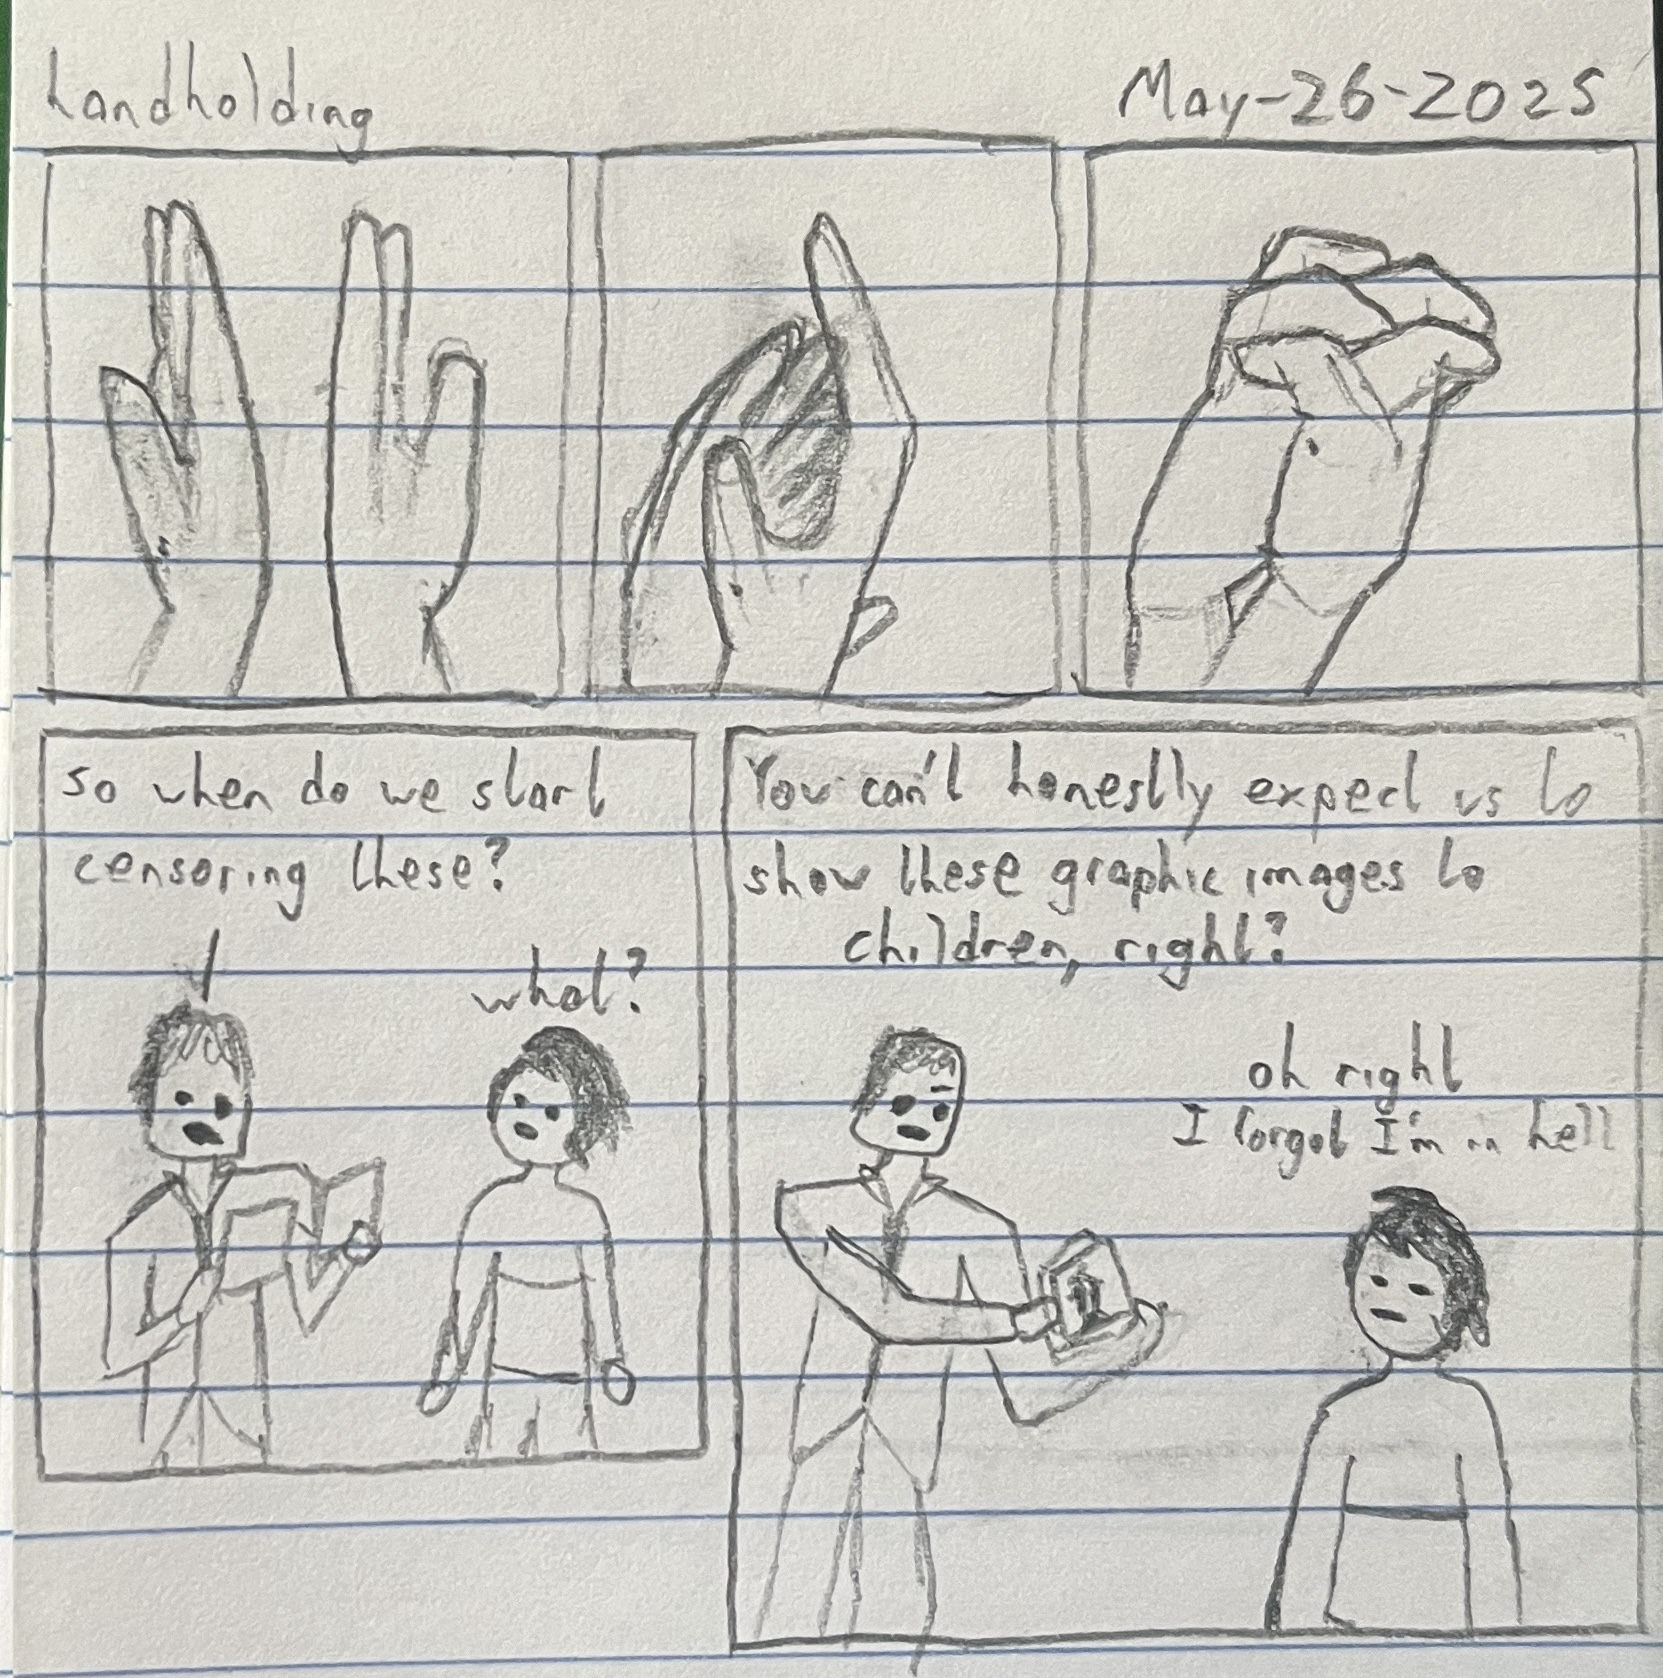 handholding
May-26-2025
so when do we start
censoring these?
what?
You can't honestly expect us to
show these graphic images to
children, right?
oh right
I forgot I'm in hell